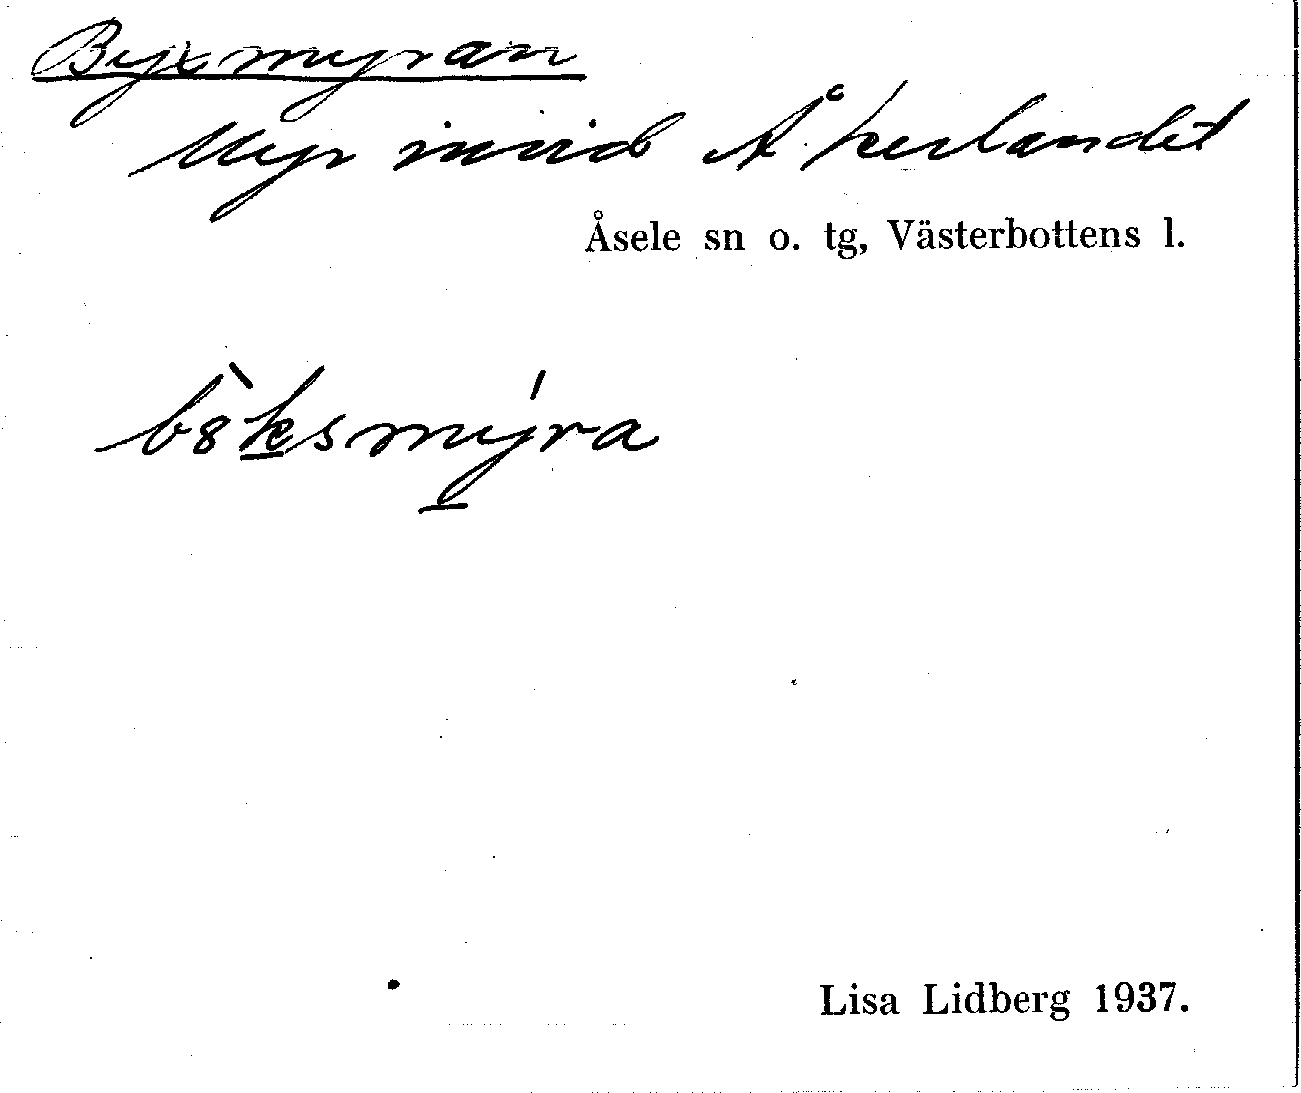 Byxmyran
Myr invid Åkerlandet
Åsele sn o. tg, Västerbottens l.
b8̀k̲smý̲ra
Lisa Lidberg 1937.